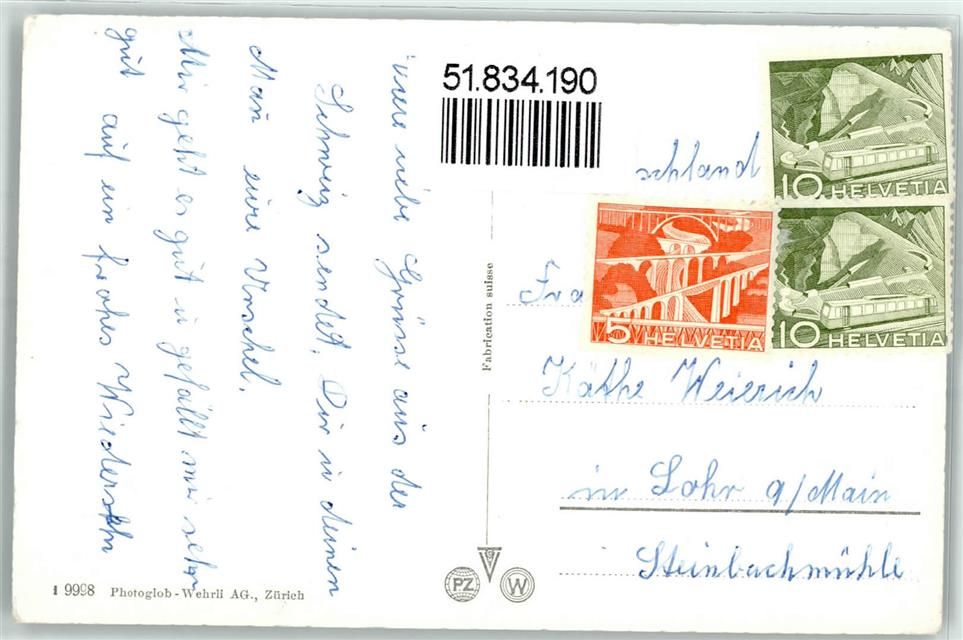 usere liebe Grüsse aus der
Schweiz sendet. Dir u deinen
Man eure Uschel.
Mir geht es gut u gefällt mir sehr
gut auf ein frohes Wiedersehn
51.834.190
schland
10 HELVETIA
5 HELVETIA
10 HELVETIA
Fra
Käthe Weierich
in Lohr a/Main
Steinbachmühle
Fabrication suisse
PZ
W
1 9998 Photoglob-Wehrli AG., Zürich